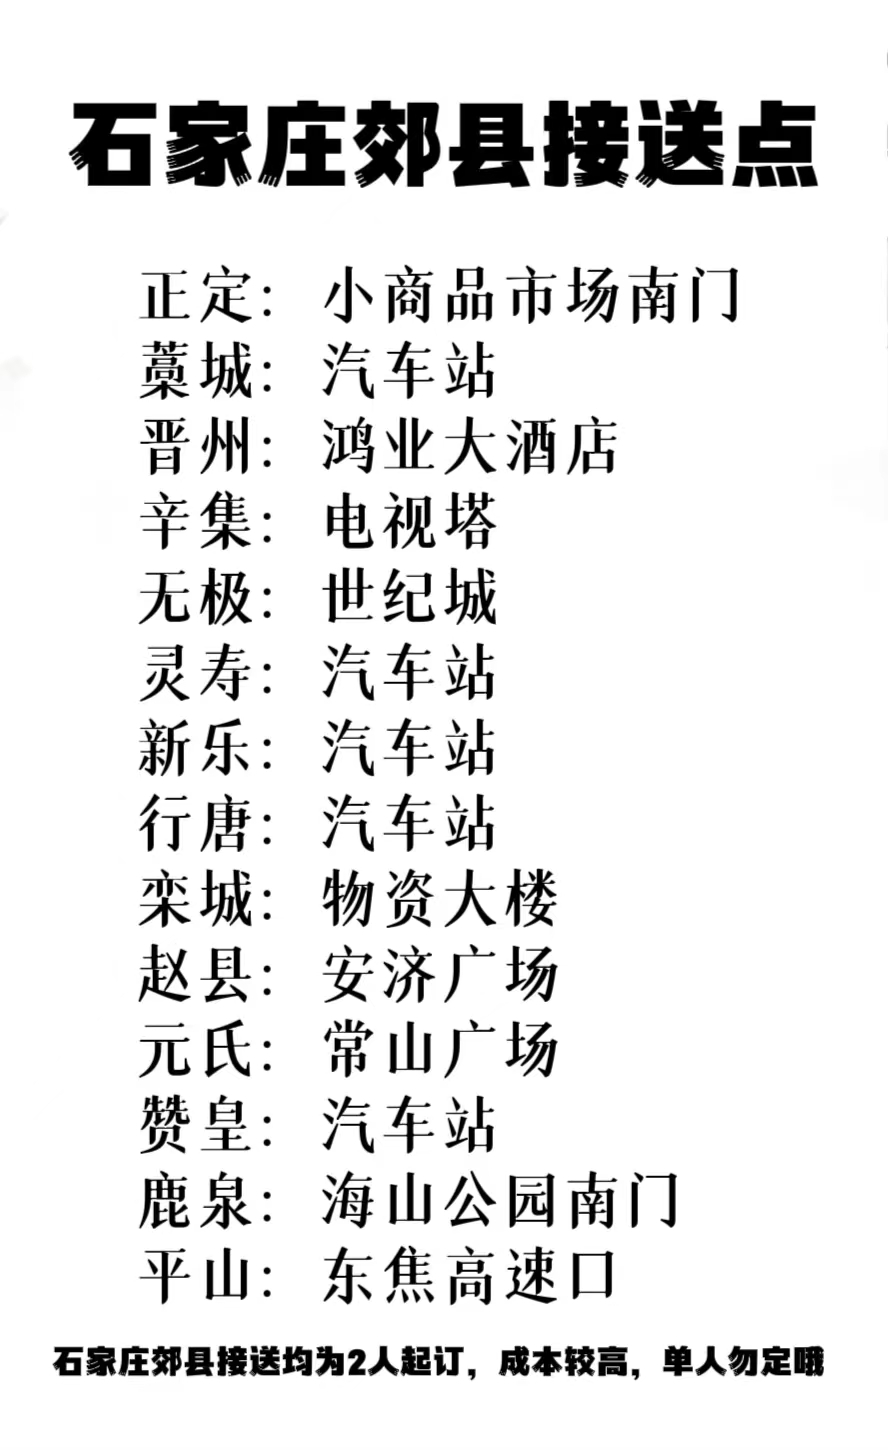 石家庄郊县接送点
正定：小商品市场南门
藁城：汽车站
晋州：鸿业大酒店
辛集：电视塔
无极：世纪城
灵寿：汽车站
新乐：汽车站
行唐：汽车站
栾城：物资大楼
赵县：安济广场
元氏：常山广场
赞皇：汽车站
鹿泉：海山公园南门
平山：东焦高速口
石家庄郊县接送均为2人起订，成本较高，单人勿定哦